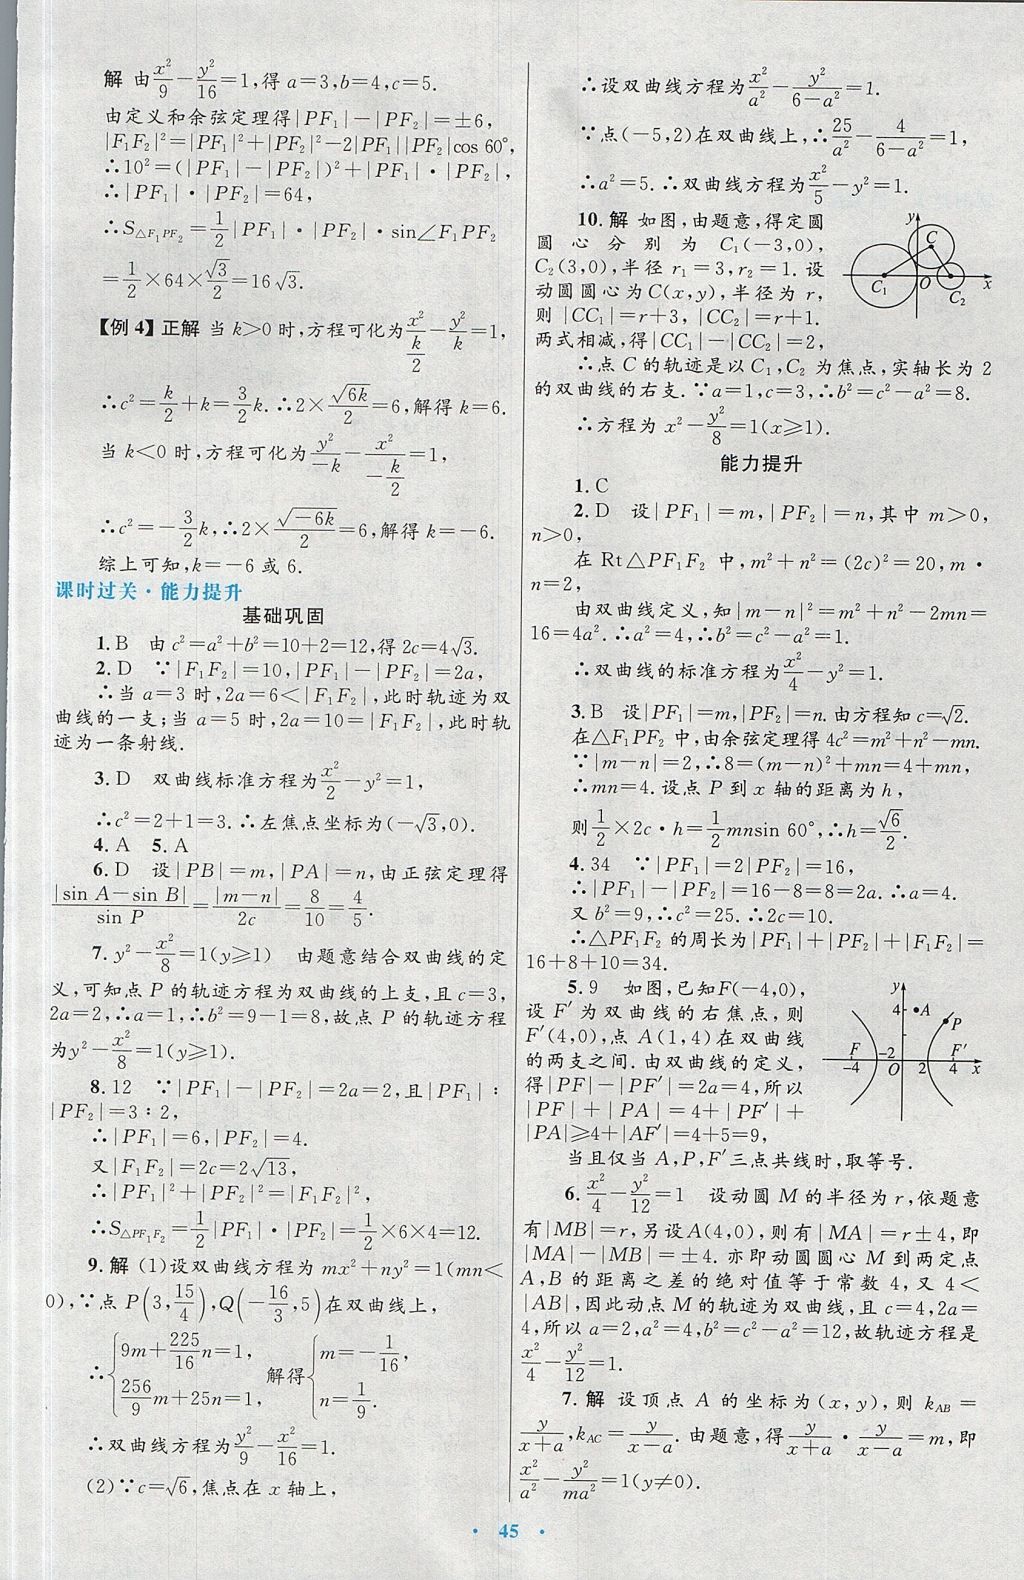 解 由x²/9－y²/16＝1,得 a＝3,b＝4,c＝5.
由定义和余弦定理得|PF₁|－|PF₂|＝±6,
|F₁F₂|²＝|PF₁|²＋|PF₂|²－2|PF₁||PF₂|cos 60°,
∴10²＝(|PF₁|－|PF₂|)²＋|PF₁|·|PF₂|,
∴|PF₁|·|PF₂|＝64,
∴S△F₁PF₂＝1/2|PF₁|·|PF₂|·sin∠F₁PF₂
＝1/2×64×√3/2＝16√3.
【例4】正解 当 k＞0 时,方程可化为x²/(k/2)－y²/k＝1,
∴c²＝k/2＋k＝3/2k.∴2×√(6k)/2＝6,解得 k＝6.
当 k＜0 时,方程可化为y²/(－k)－x²/(－k/2)＝1,
∴c²＝－3/2k,∴2×√(－6k)/2＝6,解得 k＝－6.
综上可知,k＝－6 或 6.
课时过关·能力提升
基础巩固
1.B 由 c²＝a²＋b²＝10＋2＝12,得 2c＝4√3.
2.D ∵|F₁F₂|＝10,|PF₁|－|PF₂|＝2a,
∴当 a＝3 时,2a＝6＜|F₁F₂|,此时轨迹为双
曲线的一支;当 a＝5 时,2a＝10＝|F₁F₂|,此时轨
迹为一条射线.
3.D 双曲线标准方程为x²/2－y²＝1,
∴c²＝2＋1＝3.∴左焦点坐标为(－√3,0).
4.A 5.A
6.D 设|PB|＝m,|PA|＝n,由正弦定理得
|sin A－sin B|/sin P＝|m－n|/2c＝8/10＝4/5.
7.y²－x²/8＝1(y≥1) 由题意结合双曲线的定
义,可知点 P 的轨迹方程为双曲线的上支,且 c＝3,
2a＝2,∴a＝1,∴b²＝9－1＝8,故点 P 的轨迹方程
为y²－x²/8＝1(y≥1).
8.12 ∵|PF₁|－|PF₂|＝2a＝2,且|PF₁|∶
|PF₂|＝3∶2,
∴|PF₁|＝6,|PF₂|＝4.
又|F₁F₂|＝2c＝2√13,
∴|PF₁|²＋|PF₂|²＝|F₁F₂|²,
∴S△PF₁F₂＝1/2|PF₁|·|PF₂|＝1/2×6×4＝12.
9.解 (1)设双曲线方程为 mx²＋ny²＝1(mn＜
0),∵点 P(3,15/4),Q(－16/3,5)在双曲线上,
∴{9m＋225/16n＝1, 256/9m＋25n＝1, 解得{m＝－1/16, n＝1/9.
∴双曲线方程为y²/9－x²/16＝1.
(2)∵c＝√6,焦点在 x 轴上,
∴设双曲线方程为x²/a²－y²/(6－a²)＝1.
∵点(－5,2)在双曲线上,∴25/a²－4/(6－a²)＝1,
∴a²＝5.∴双曲线方程为x²/5－y²＝1.
10.解 如图,由题意,得定圆
圆心分别为 C₁(－3,0),
C₂(3,0),半径 r₁＝3,r₂＝1.设
动圆圆心为C(x,y),半径为 r,
则 |CC₁|＝r＋3, |CC₂|＝r＋1.
两式相减,得|CC₁|－|CC₂|＝2,
y C C₁ O C₂ x
∴点 C 的轨迹是以 C₁,C₂ 为焦点,实轴长为 2
的双曲线的右支.∵a＝1,c＝3,∴b²＝c²－a²＝8.
∴方程为 x²－y²/8＝1(x≥1).
能力提升
1.C
2.D 设|PF₁|＝m,|PF₂|＝n,其中 m＞0,
n＞0,
在 Rt△PF₁F₂ 中,m²＋n²＝(2c)²＝20,m·
n＝2,
由双曲线定义,知|m－n|²＝m²＋n²－2mn＝
16＝4a².∴a²＝4,∴b²＝c²－a²＝1.
∴双曲线的标准方程为x²/4－y²＝1.
3.B 设|PF₁|＝m,|PF₂|＝n.由方程知 c＝√2.
在△F₁PF₂ 中,由余弦定理得 4c²＝m²＋n²－mn.
∵|m－n|＝2,∴8＝(m－n)²＋mn＝4＋mn,
∴mn＝4.设点 P 到 x 轴的距离为 h,
则1/2×2c·h＝1/2mnsin 60°,∴h＝√6/2.
4.34 ∵|PF₁|＝2|PF₂|＝16,
∴|PF₁|－|PF₂|＝16－8＝8＝2a.∴a＝4.
又 b²＝9,∴c²＝25.∴2c＝10.
∴△PF₁F₂ 的周长为|PF₁|＋|PF₂|＋|F₁F₂|＝
16＋8＋10＝34.
5.9 如图,已知F(－4,0),
设 F′为双曲线的右焦点,则
F′(4,0),点 A(1,4)在双曲线
的两支之间.由双曲线的定义,
得|PF|－|PF′|＝2a＝4,所以
|PF|＋|PA|＝4＋|PF′|＋
|PA|≥4＋|AF′|＝4＋5＝9,
y 4 A P F －2 F′ －4 O 2 4 x
当且仅当 A,P,F′三点共线时,取等号.
6.x²/4－y²/12＝1 设动圆 M 的半径为 r,依题意
有|MB|＝r,另设A(4,0),则有|MA|＝r±4,即
|MA|－|MB|＝±4.亦即动圆圆心 M 到两定点
A,B 的距离之差的绝对值等于常数 4,又 4＜
|AB|,因此动点 M 的轨迹为双曲线,且 c＝4,2a＝
4,所以 a＝2,a²＝4,b²＝c²－a²＝12,故轨迹方程是
x²/4－y²/12＝1.
7.解 设顶点 A 的坐标为(x,y),则 kAB＝
y/(x＋a),kAC＝y/(x－a).由题意,得y/(x＋a)·y/(x－a)＝m,即
x²/a²－y²/ma²＝1(y≠0).
· 45 ·